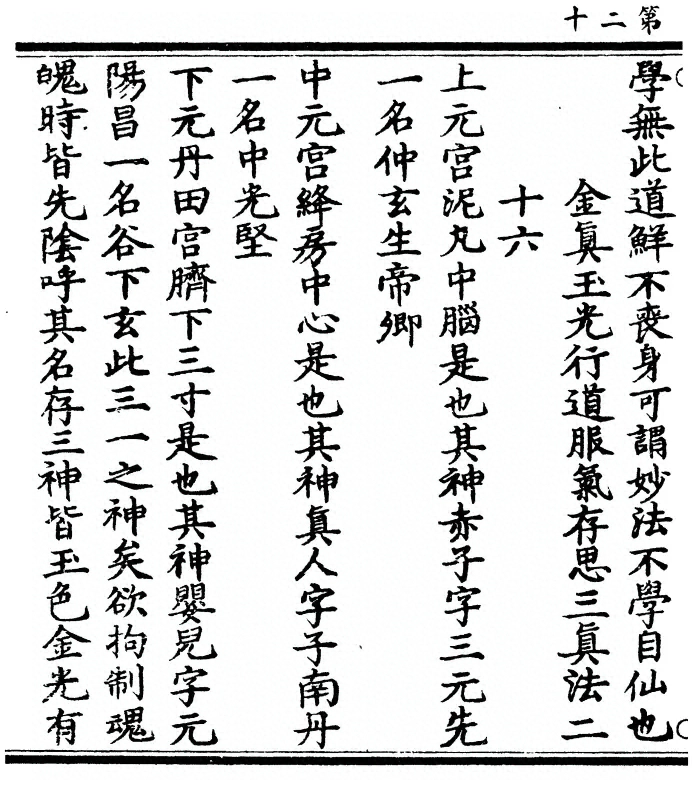 第二十
學無此道鮮不喪身可謂妙法不學自仙也
金眞玉光行道服氣存思三眞法二
十六
上元宮泥丸中腦是也其神赤子字三元先
一名仲玄生帝卿
中元宮絳房中心是也其神眞人字子南丹
一名中光堅
下元丹田宮臍下三寸是也其神嬰兒字元
陽昌一名谷下玄此三一之神矣欲拘制魂
魄時皆先陰呼其名存三神皆玉色金光有